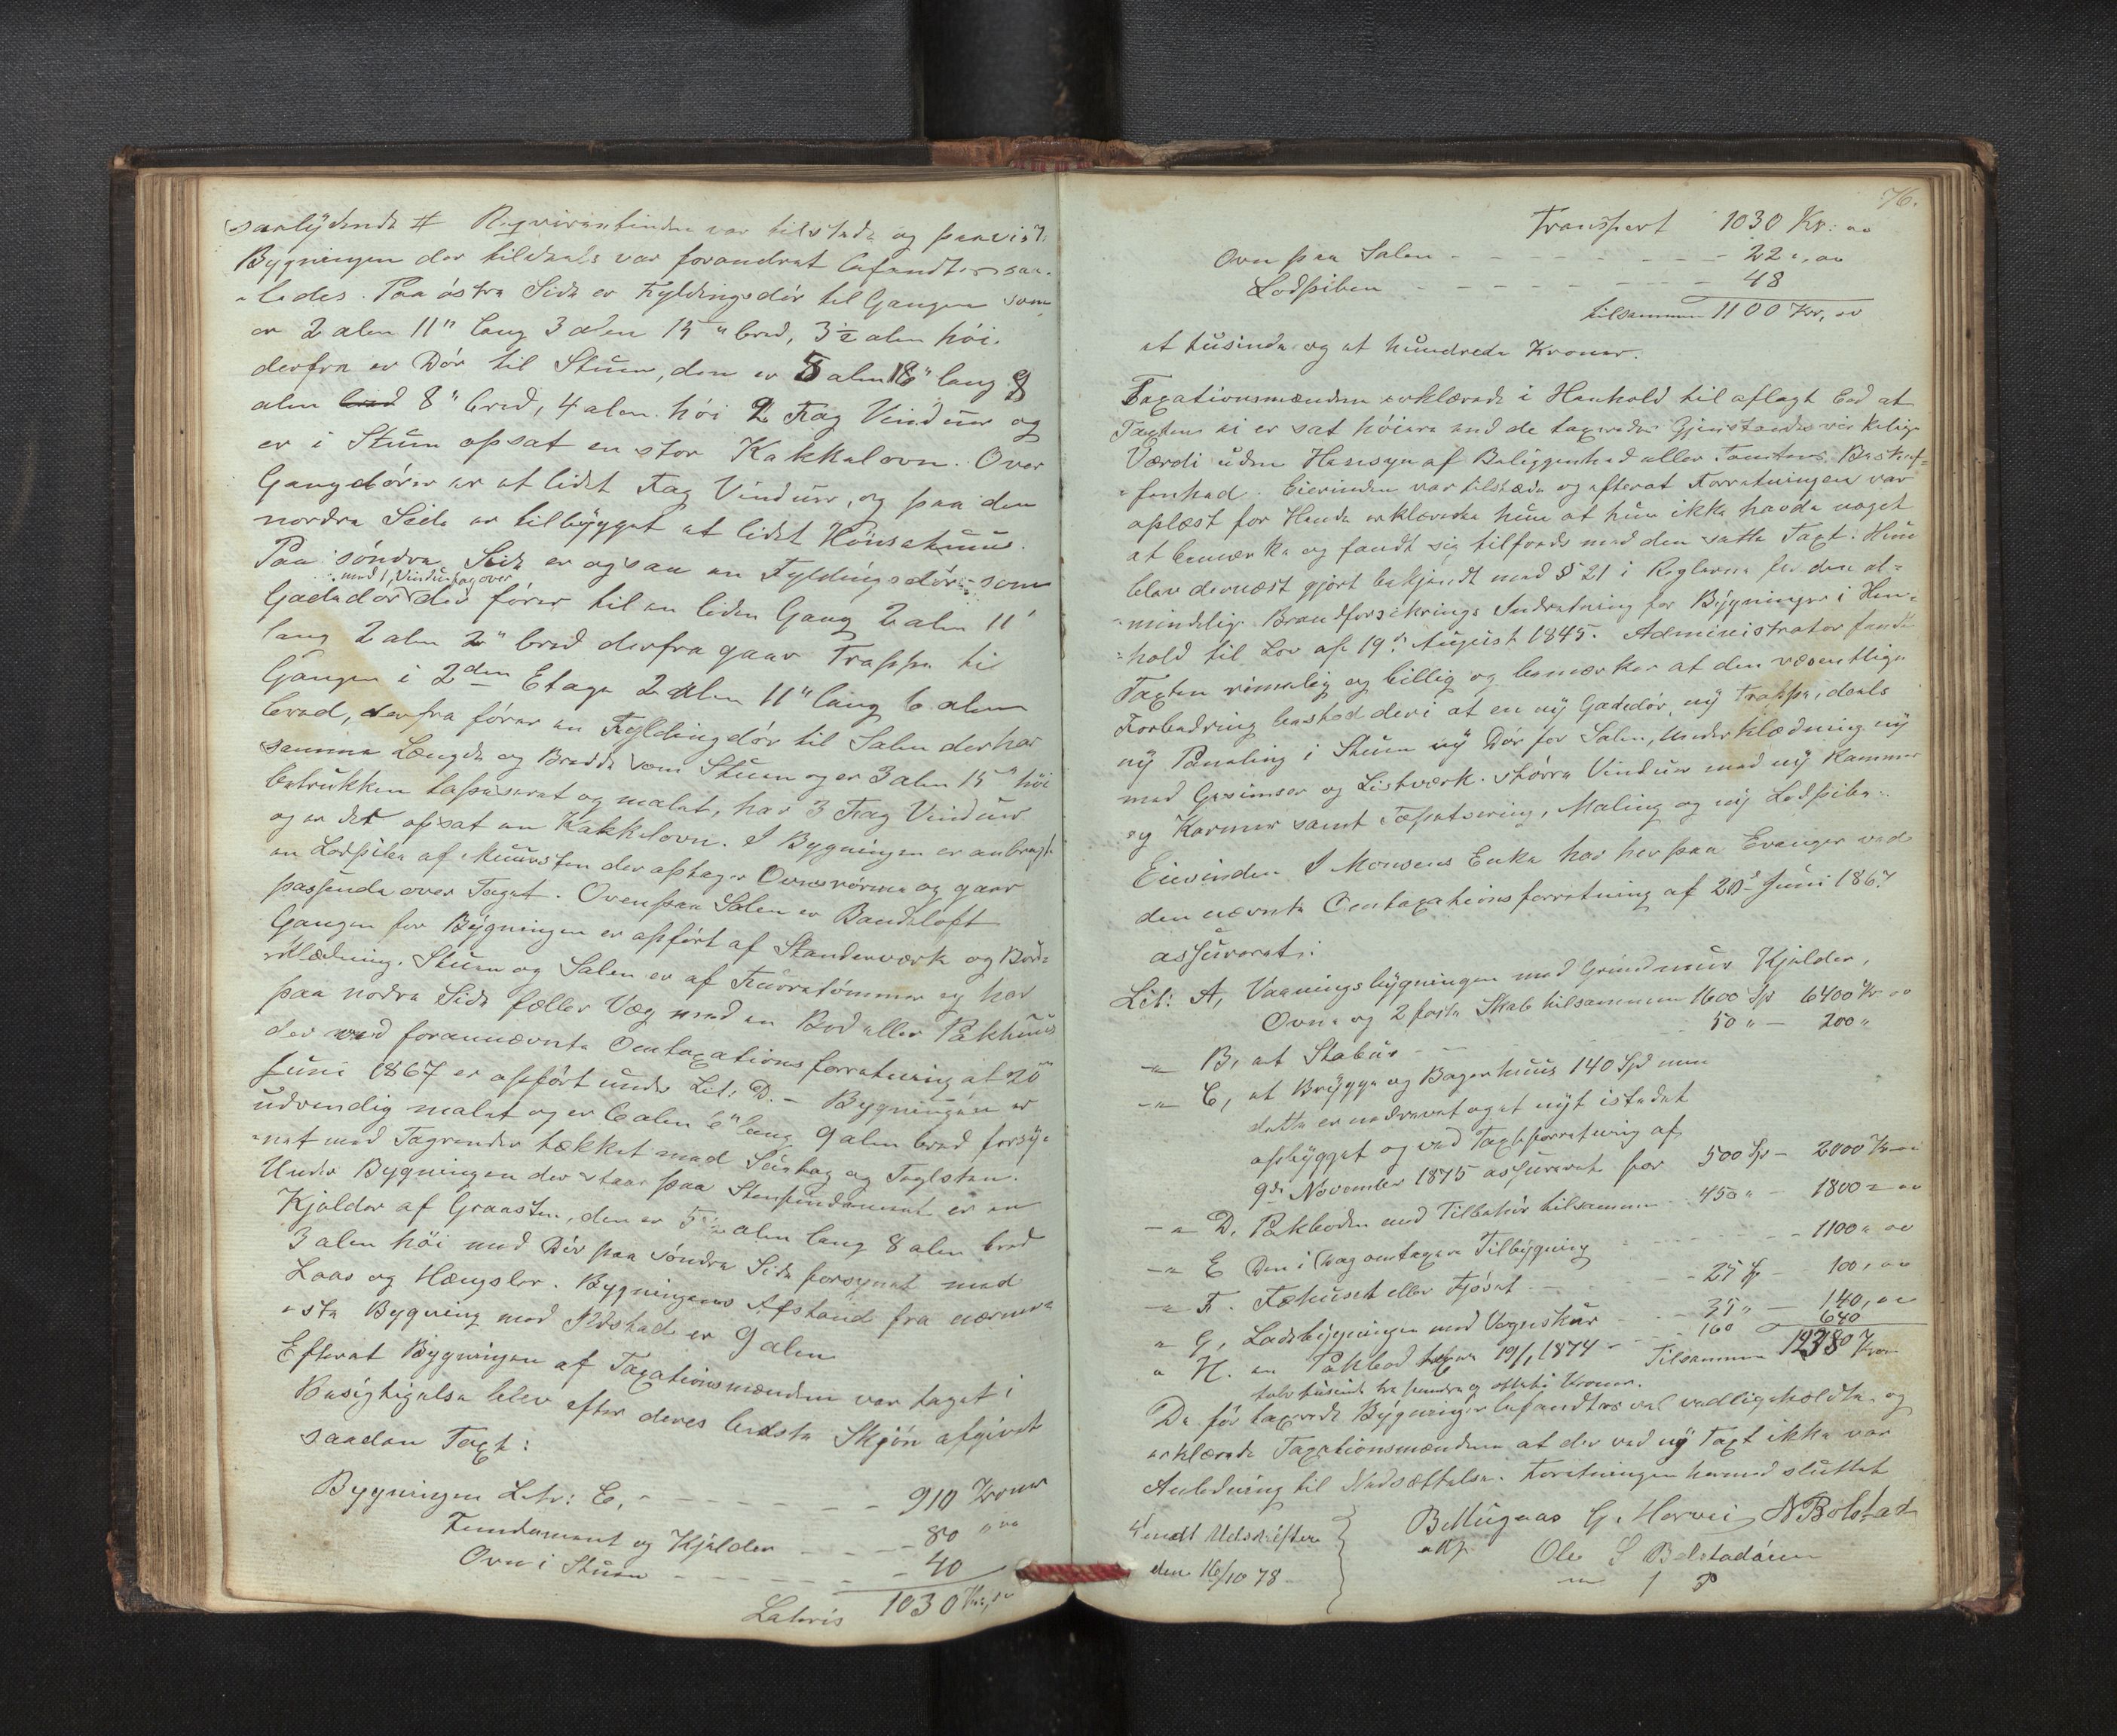 saalydende # Reqvirentinden var tilstede og paaviste
Bygningen der tildeels var forandret befandtes saa-
-ledes. Paa östre Side er Fyldingsdör til Gangen som
er 2 alen 11" lang 3 alen 15" bred, 3½ alen höi.
derfra er Dör til Stuen, den er 5 alen 18" lang 8
alen bred 8" bred, 4 alen höi 2 Fag Vinduer og
er i Stuen opsat en stor Kakkelovn. Over
Gangdören er et lidet Fag Vinduer, og paa den
nordre Side er tilbygget et lidet Hönsehuus.
Paa söndre Side er ogsaa en Fyldingsdör som
med 1 Vinduefag over
Gadedör der förer til en liden Gang 2 alen 11"
lang 2 alen 2" bred derfra gaar Trappe til
Gangen i 2den Etage 2 alen 11" lang 6 alen
bred, derfra förer en Fyldingdör til Salen der har
samme Længde og Bredde som Stuen og er 3 alen 15" höi
betrukken tapeseret og malet, har 3 Fag Vinduer
og er der opsat en Kakkelovn. I Bygningen er anbragt
en Lodpibe af Muursten der optager Ovnsrörene og gaar
passende over Taget. Ovenpaa Salen er Bandeloft
Gangen for Bygningen er opfört af Standerværk og Bord-
-klædning. Stuen og Salen er af Furretömmer og har
paa nodre Side fælles Væg med en Bod eller Pakhuus
der ved forannævnte Omtaxationsforretning af 20de
Juni 1867 er opfört under Lit: D. - Bygningen er
udvendig malet og er 6 alen 6" lang 9 alen bred forsy-
-net med Tagrender tækket med Seistag og Taglsten.
Under Bygningen der staar paa Stenfundament er en
Kjælder af Graasten, den er 5½ alen lang 8 alen bred
3 alen höi med Dör paa söndre Side forsynet med
Laas og Hængsler. Bygningens Afstand fra nærme-
-ste Bygning med Ildsted er 9 alen
Efterat Bygningen af Taxationsmændene var taget i
Besigtigelse blev efter deres bedste Skjön afgivet
saadan Taxt:
Bygningen Litr: E, - - - - - - - 910 Kroner
Fundament og Kjælder - - - - 80 " "
Ovn i Stuen - - - - - - - 40
Lateris 1030 Kr, "
76.
Transport 1030 Kr: "
Ovn paa Salen - - - - - - - - 22 ", "
Lodpiben - - - - - - - - 48
tilsammen 1100 Kr, "
et tusinde og et hundrede Kroner.
Taxationsmændene erklærede i Henhold til aflagt Eed at
Taxten ei er sat höiere end de taxerede Gjenstandes virkelige
Værdi uden Hensyn af Beliggenhed eller Tomtens Beskaf-
-fenhed. Eierinden var tilstæde og efterat Forretningen var
oplæst for Hende erklærede hun at hun ikke havde noget
at bemærke og fandt sig tilfreds med den satte Taxt. Hun
blev dernæst gjort bekjendt med § 21 i Reglerne for den al-
-mindelige Brandforsikrings Indretning for Bygninger i Hen-
-hold til Lov af 19de August 1845. Administrator fandt
Taxten rimelig og billig og bemærker at den væsentlige
Forbedring bestod deri at en ny Gadedör, ny Trappe, deels
ny Paneling i Stuen ny Dör for Salen, Underklædning ny
med Gesimser og Listværk. större Vinduer med ny Rammer
og Karmer samt Tapetsering, Maling og ny Lodpibe.
Eierinden I Monsens Enke har her paa Evanger ved
den nævnte Omtaxationsforretning af 20de Juni 1867
assureret:
Lit: A, Vaaningsbygningen med Grundmuur Kjælder,
Ovne og 2 faste Skabe tilsammen 1600 Sp 6400 Kr "
- " B, et Stabur - - 50 " - 200 "
- " C, et Brygge og Bagerhuus 140 Spd men
dette er nedrevet og et nyt istedet
opbygget og ved Taxtforretning af
9de November 1875 assureret for 500 Sp - 2000 Kr "
- " D. Pakboden med Tilbehör tilsammen 450 " - 1800 " "
- " E Den i Dag omtaxere Tilbygning - - - - 1100 " "
- " F. Fæhuset eller Fjöset - - - 25 Sp - 100, "
" G, Ladebygningen med Vognskur - - 35 " - 140, "
" H. en Pakbod 19/1 1874 - - - 160 640
Tilsammen 12380 Kr
tolv tusinde tre hundre og otteti Kroner.
De för taxerede Bygninger befandtes vel vedligeholdte og
erklærede Taxationsmændene at der ved ny Taxt ikke var
Anledning til Nedsættelse. Forretningen hermed sluttet
B Mugaas G Horvei N Bolstad
Ole S Bolstadören
Sendt Udskrifter
den 16/10 78